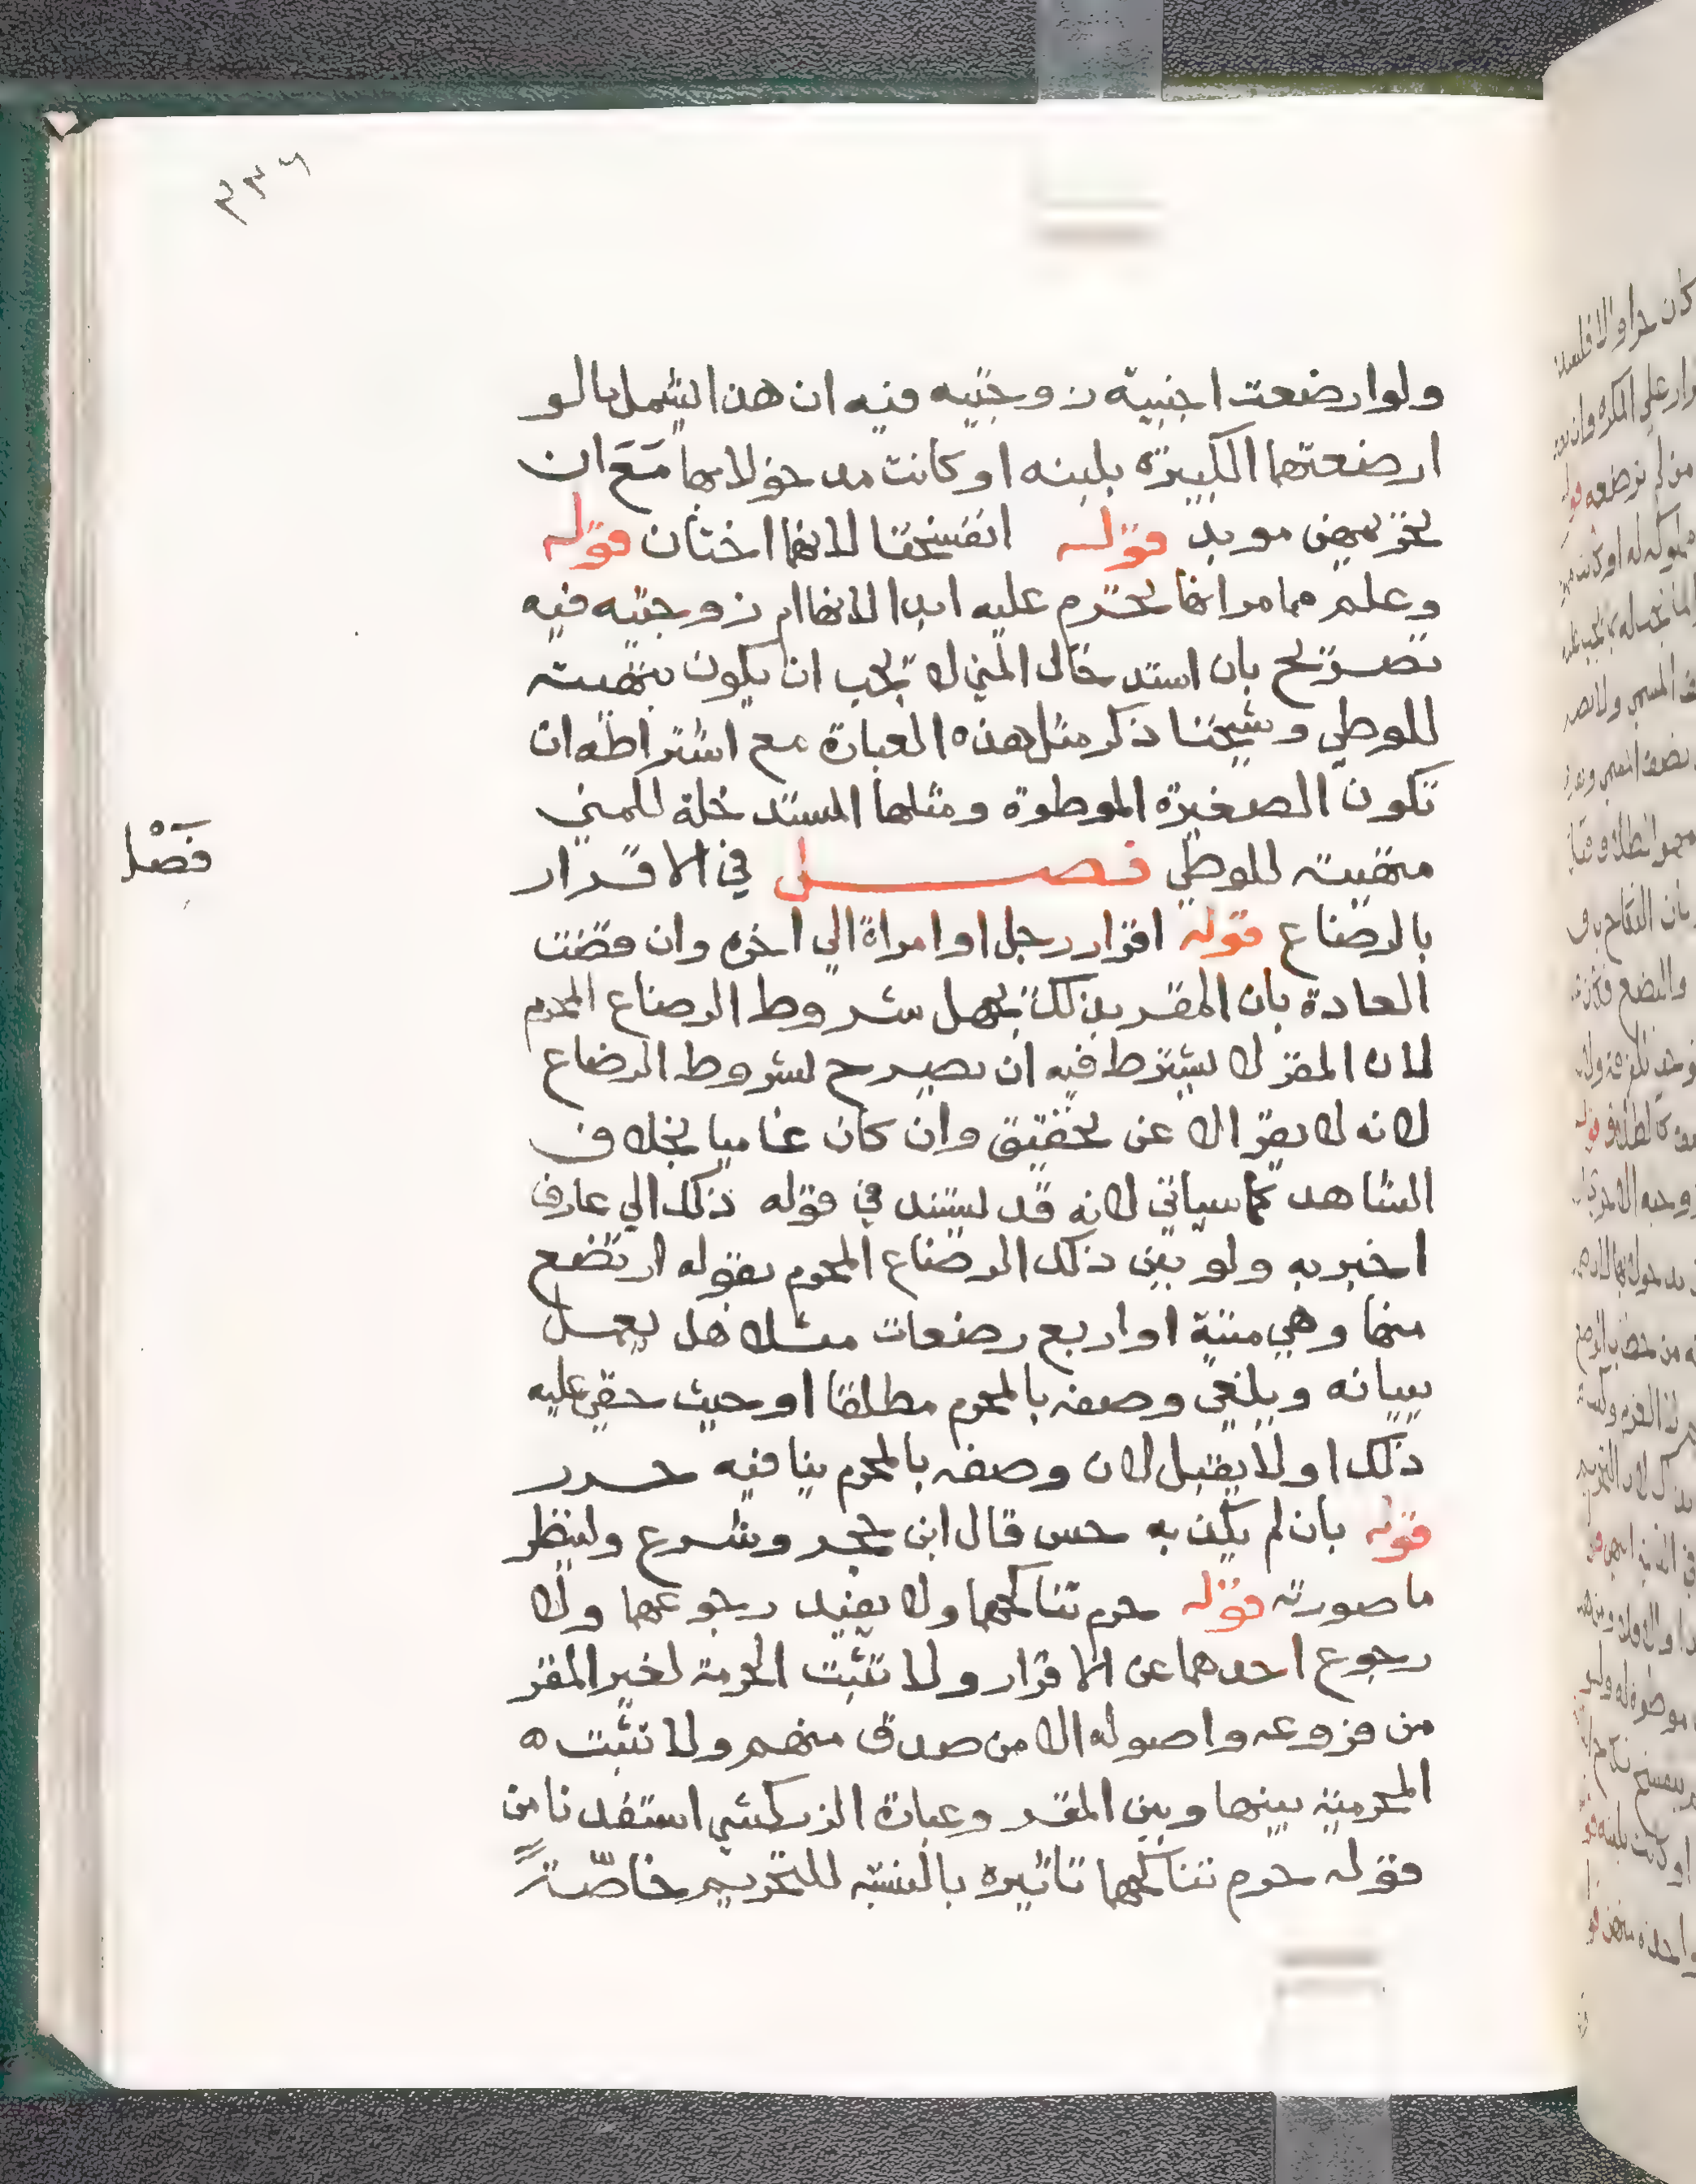 ٣٣٦
ولو ارضعت اجنبية زوجتيه فيه ان هذا يشمل ما لو
ارضعتهما الكبيرة بلبنه او كانت مدخولا بها مَعَ ان
تحريمهن موبد قوله انفسختا لانهما اختان قوله
وعلم مما مر انها تحرم عليه ابدا لانها ام زوجتيه فيه
تصريح بان استدخال المني لا يجب ان يكون بتهيئه
للوطي وشيخنا ذكر مثل هذه العبارة مع اشتراطه ان
تكون الصغيرة الموطوة ومثلها المستدخلة للمني
متهيئه للوطي فصل في الاقرار
فَصْل
بالرضاع قوله اقرار رجل او امراة الي اخره وان قضت
العادة بان المقر بذلك يجهل شروط الرضاع المحرم
لان المقر لا يشترط فيه ان يصرح بشروط الرضاع
لانه لا يقر الا عن تحقيق وان كان عاميا بخلاف
الشاهد كما سياتي لانه قد يستند في قوله ذلك الي عارف
اخبر به ولو بين ذلك الرضاع المحرم بقوله ارتضع
منها وهي ميتة او اربع رضعات مثلا هل يعمل
ببيانه ويلغي وصفه بالمحرم مطلقا او حيث خفي عليه
ذلك او لا يقبل لان وصفه بالمحرم ينافيه حرر
قوله بان لم يكذبه حس قال ابن حجر وشرع ولينظر
ما صورته قوله حرم تناكحهما ولا يفيد رجوعهما ولا
رجوع احدهما عن الاقرار ولا تثبت الحرمة لغير المقر
من فروعه واصوله الا من صدق منهم ولا تثبت ه
المحرمية بينها وبين المقر وعبارة الزركشي استفدنا من
قوله حرم تناكحهما تاثيره بالنسبه للتحريم خاصّة